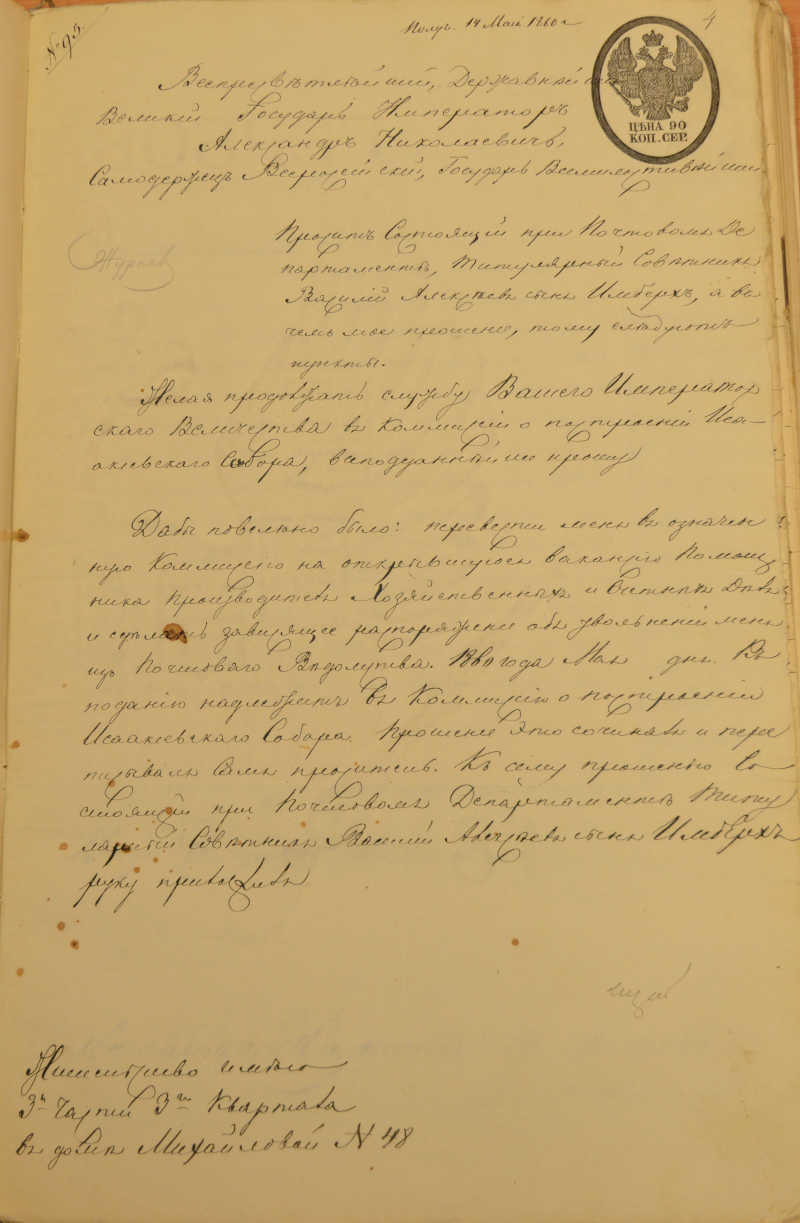 № 93.
Получ. 14 Мая 1860 г.
4
ЦѢНА 90
КОП. СЕР.
Всепресвѣтлѣйшій, Державнѣйшій
Великій Государь Императоръ
Александръ Николаевичъ,
Самодержецъ Всероссійскій, Государь Всемилостивѣйшій.
Проситъ Состоящій при Почтовомъ Де
партаментѣ, Титулярный Совѣтникъ
Василій Алексѣевъ сынъ Имбергъ, а въ
чемъ мое прошеніе, тому слѣдуютъ
пункты.
Желая продолжать службу Вашего Император
скаго Величества въ Коммисіи о построеніи Иса-
акіевскаго Собора, всеподданнѣйше прошу
Дабы повелѣно было: перевести меня въ означен
ную Коммисію на открывшуюся ваканцію Помощ
ника Производителя Хозяйственныхъ и Счетныхъ Дѣлъ
и сдѣлать зависящее распоряженіе объ увольненіи меня
изъ Почтоваго Вѣдомства. 1860 года Мая дня. Къ
поданію надлежитъ въ Коммисію о построеніи
Исаакіевскаго Собора. Прошеніе это сочинялъ и пере
писывалъ самъ проситель. Къ сему прошенію Со
стоящій при Почтовомъ Департаментѣ Титу
лярный Совѣтникъ Василій Алексѣевъ сынъ Имбергъ
руку приложилъ
Жительство имѣю
3й Части 3го Квартала
въ домѣ Михайловой N 48